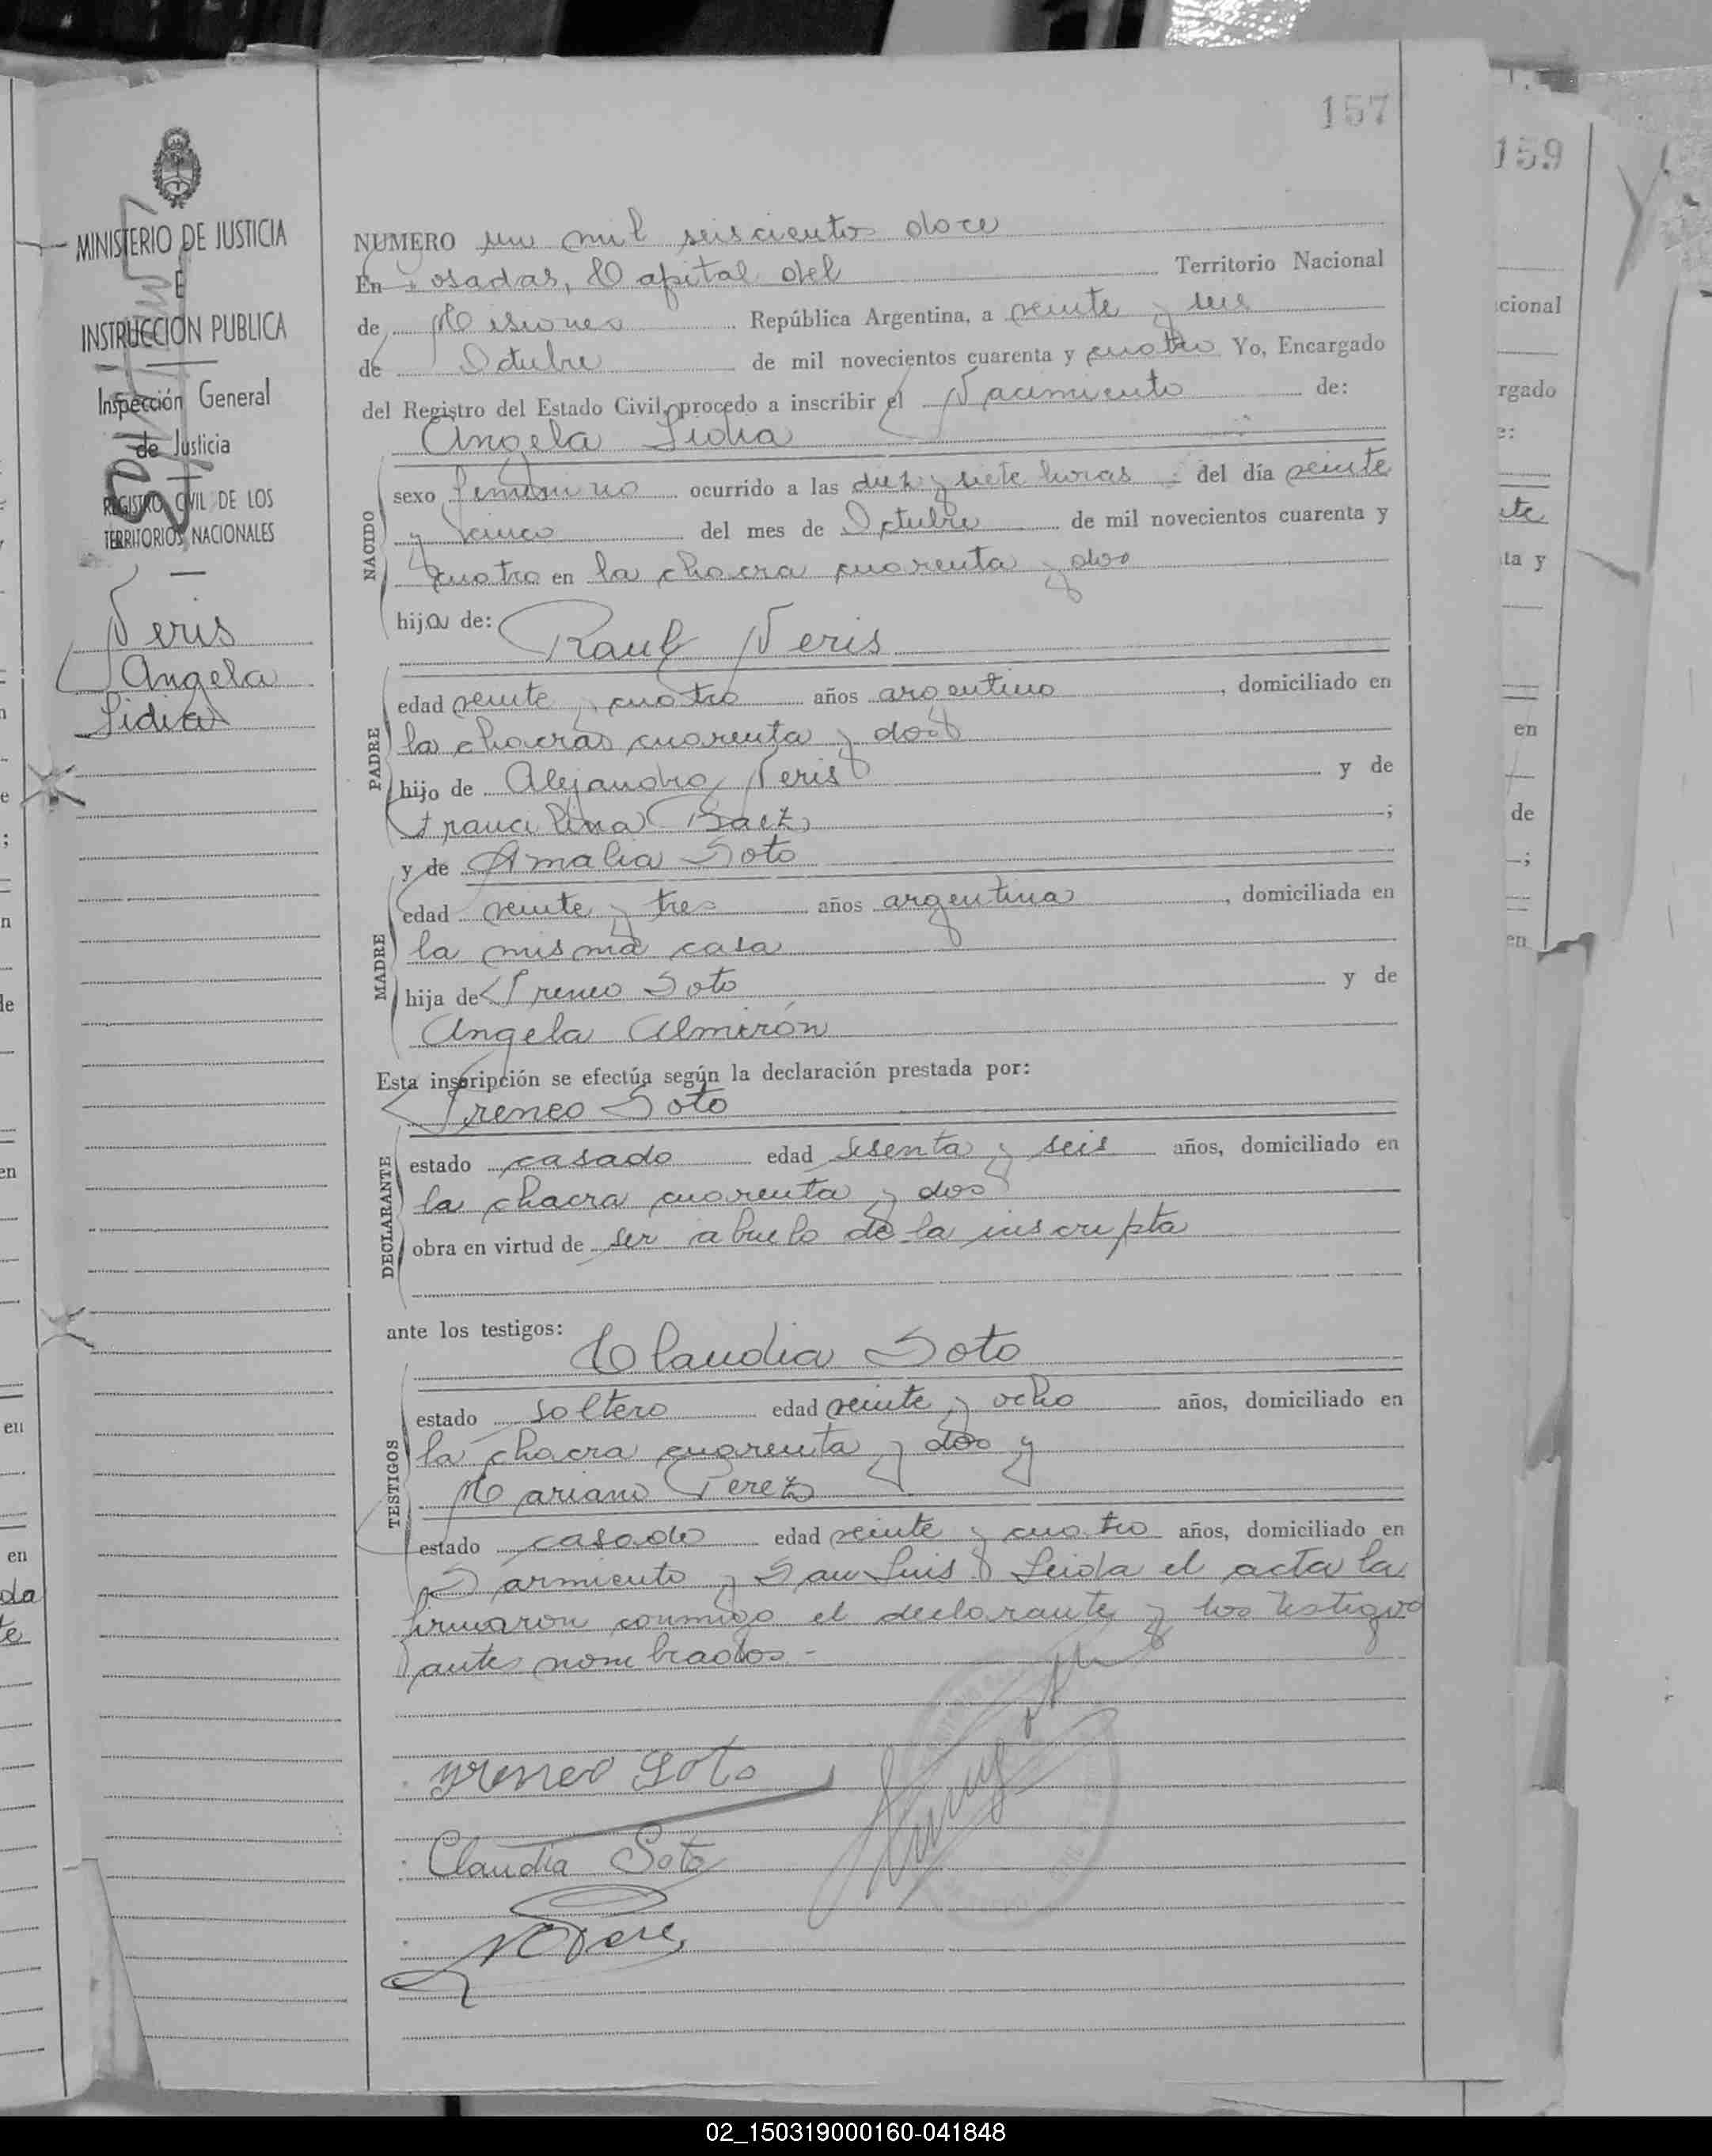 157
159
MINISTERIO DE JUSTICIA
E
INSTRUCCION PUBLICA
Inspección General
de Justicia
REGISTRO CIVIL DE LOS
TERRITORIOS NACIONALES
Neris
Angela
Lidia
NUMERO un mil seiscientos doce
En Posadas, Capital del Territorio Nacional
de Misiones República Argentina, a veinte y seis
de Octubre de mil novecientos cuarenta y cuatro Yo, Encargado
del Registro del Estado Civil, procedo a inscribir el Nacimiento de:
Angela Lidia
NACIDO
sexo femenino ocurrido a las diez y siete horas del día veinte
y cinco del mes de Octubre de mil novecientos cuarenta y
cuatro en la chacra cuarenta y dos
hija de:
Raul Neris
PADRE
edad veinte y cuatro años argentino, domiciliado en
la chacras cuarenta y dos
hijo de Alejandro Neris y de
Francilina Baez;
y de Amalia Soto
MADRE
edad veinte y tres años argentina, domiciliada en
la misma casa
hija de Ireneo Soto y de
Angela Almirón
Esta inscripción se efectúa según la declaración prestada por:
Ireneo Soto
DECLARANTE
estado casado edad sesenta y seis años, domiciliado en
la chacra cuarenta y dos
obra en virtud de ser abuelo de la inscripta
ante los testigos:
Claudia Soto
TESTIGOS
estado soltero edad veinte y ocho años, domiciliado en
la chacra cuarenta y dos y
Mariano Perez
estado casado edad veinte y cuatro años, domiciliado en
Sarmiento y San Luis. Leida el acta la
firmaron conmigo el declarante y los testigos
antes nombrados.-
Yreneo Soto
Claudia Soto
cional
rgado
e:
ta y
en
de
;
en
02_150319000160-041848